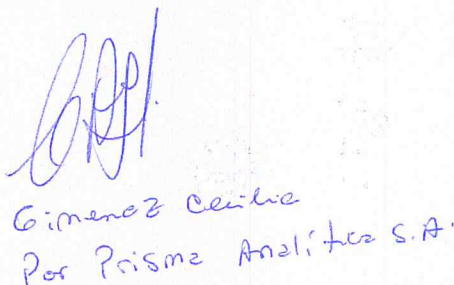 Gimenez Cecilia
Por Prisma Analítica S.A.